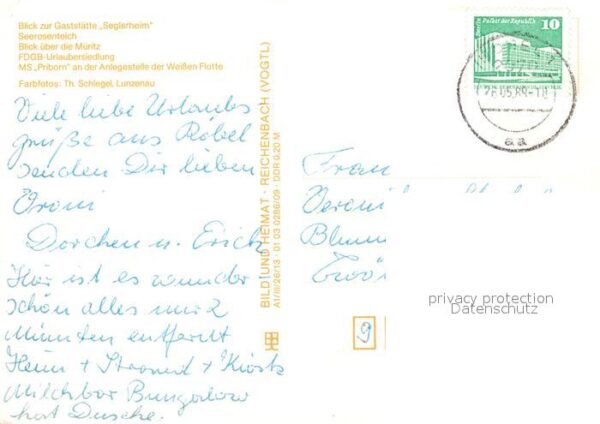 Blick zur Gaststätte „Seglerheim"
Seerosenteich
Blick über die Müritz
FDGB-Urlaubersiedlung
MS „Priborn" an der Anlegestelle der Weißen Flotte
Farbfotos: Th. Schlegel, Lunzenau
Viele liebe Urlaubs
grüße aus Röbel
senden Dir lieben
Vroni
Dorchen u. Erich
Hier ist es wunder
schön alles nur 2
Minuten entfernt
Heim + Strand + Kiosk
Milchbar Bungalow
hat Dusche.
BILD UND HEIMAT · REICHENBACH (VOGTL)
A1/III/26/13 · 01 03 0286/09 · DDR 0,20 M
Berlin, Palast der Republik
10
DDR
aa
Frau
9
privacy protection
Datenschutz